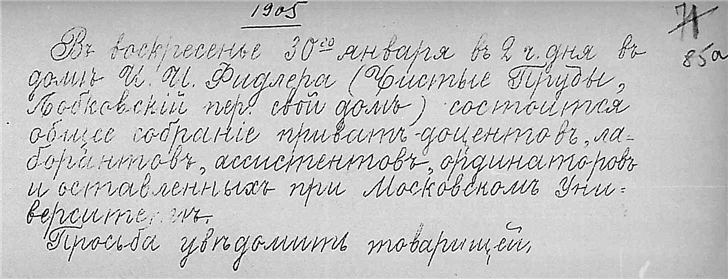 1905
71
85а
Въ воскресенье 30го января въ 2 ч. дня въ
домѣ И. И. Фидлера (Чистые Пруды,
Лобковскій пер. свой домъ) состоится
общее собраніе приватъ-доцентовъ, ла-
борантовъ, ассистентовъ, ординаторовъ
и оставленныхъ при Московскомъ Уни-
верситетѣ.
Просьба увѣдомить товарищей.